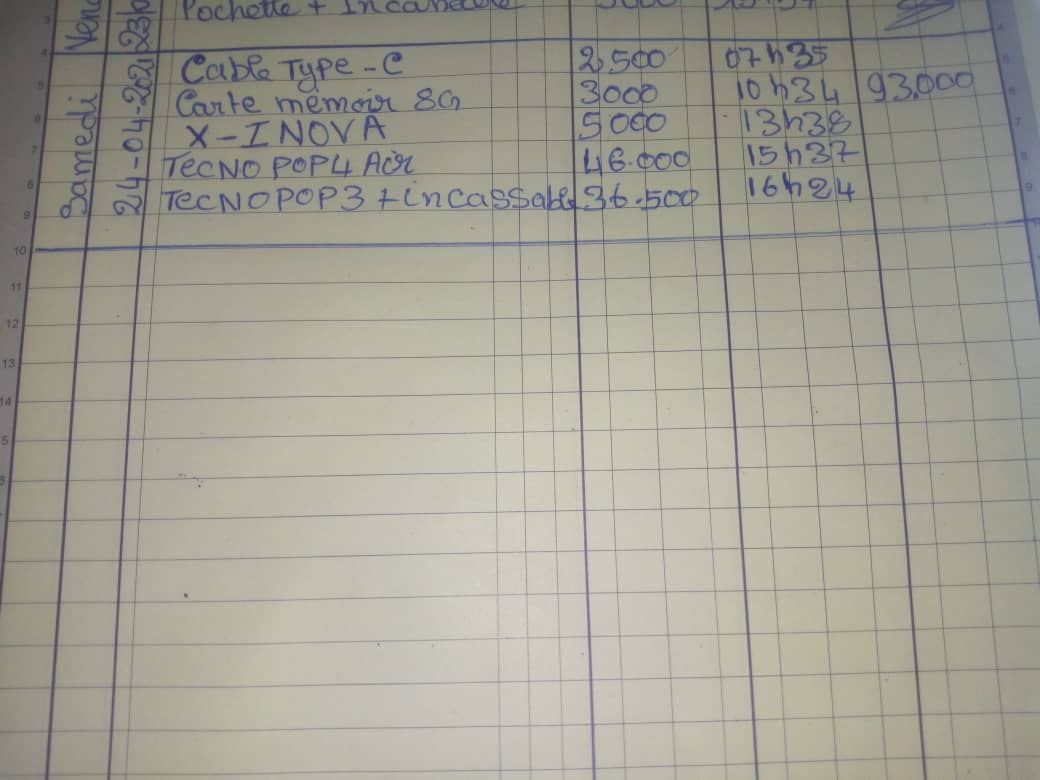 Pochette + Incassable
Samedi
24-04-202
Cable Type-C 2,500 07h35
Carte memoir 8G 3000 10h34 93.000
X-INOVA 5000 13h38
TECNO POP4 Air 46.000 15h37
TECNO POP3 + incassable 36.500 16h24
4
5
6
7
8
9
10
11
12
13
14